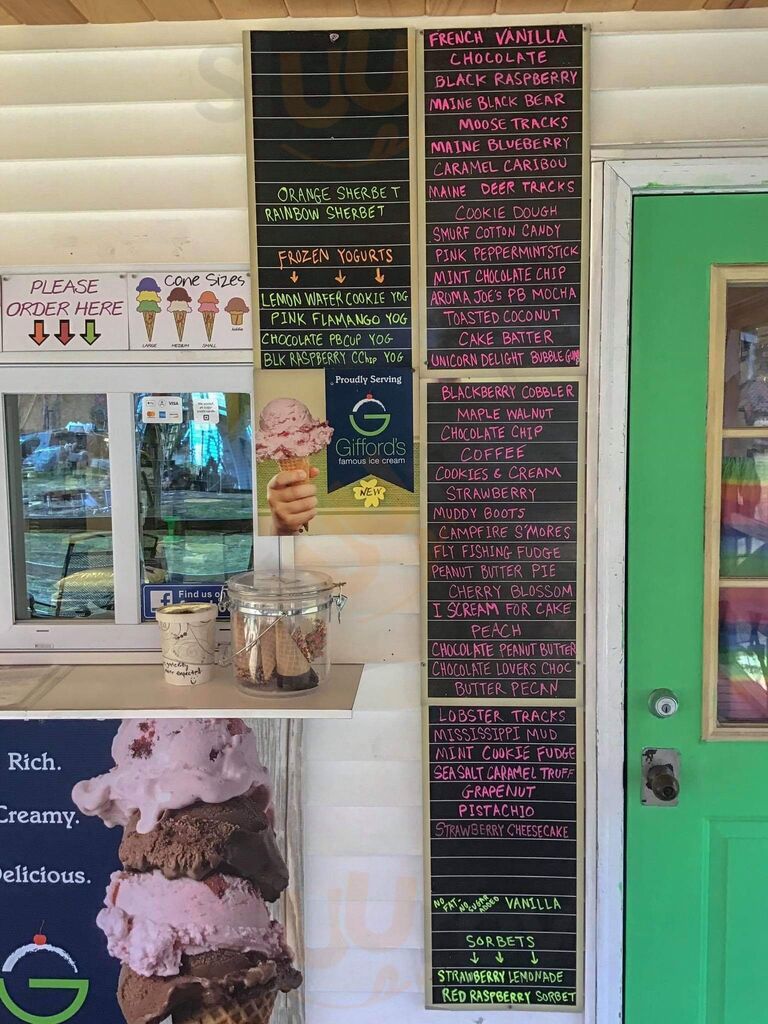 PLEASE
ORDER HERE
Cone Sizes
LARGE
MEDIUM
SMALL
kiddie
VISA
Find us on
ORANGE SHERBET
RAINBOW SHERBET
FROZEN YOGURTS
LEMON WAFER COOKIE YOG
PINK FLAMANGO YOG
CHOCOLATE PB CUP YOG
BLK RASPBERRY CChip YOG
Proudly Serving
G
Gifford's
famous ice cream
NEW
FRENCH VANILLA
CHOCOLATE
BLACK RASPBERRY
MAINE BLACK BEAR
MOOSE TRACKS
MAINE BLUEBERRY
CARAMEL CARIBOU
MAINE DEER TRACKS
COOKIE DOUGH
SMURF COTTON CANDY
PINK PEPPERMINT STICK
MINT CHOCOLATE CHIP
AROMA JOE'S PB MOCHA
TOASTED COCONUT
CAKE BATTER
UNICORN DELIGHT BUBBLE GUM
BLACKBERRY COBBLER
MAPLE WALNUT
CHOCOLATE CHIP
COFFEE
COOKIES & CREAM
STRAWBERRY
MUDDY BOOTS
CAMPFIRE S'MORES
FLY FISHING FUDGE
PEANUT BUTTER PIE
CHERRY BLOSSOM
I SCREAM FOR CAKE
PEACH
CHOCOLATE PEANUT BUTTER
CHOCOLATE LOVERS CHOC
BUTTER PECAN
LOBSTER TRACKS
MISSISSIPPI MUD
MINT COOKIE FUDGE
SEA SALT CARAMEL TRUFF
GRAPENUT
PISTACHIO
STRAWBERRY CHEESECAKE
NO FAT - NO SUGAR ADDED VANILLA
SORBETS
STRAWBERRY LEMONADE
RED RASPBERRY SORBET
Rich.
Creamy.
Delicious.
G